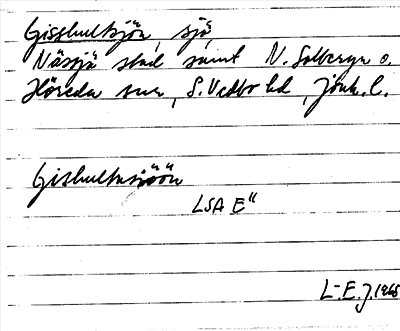 Gisshultsjön, sjö,
Nässjö stad samt N. Solberga o.
Höreda snr, S. Vedbo hd, Jönk. l.
Gishultasjöön
LSA E"
L-E. J. 1965